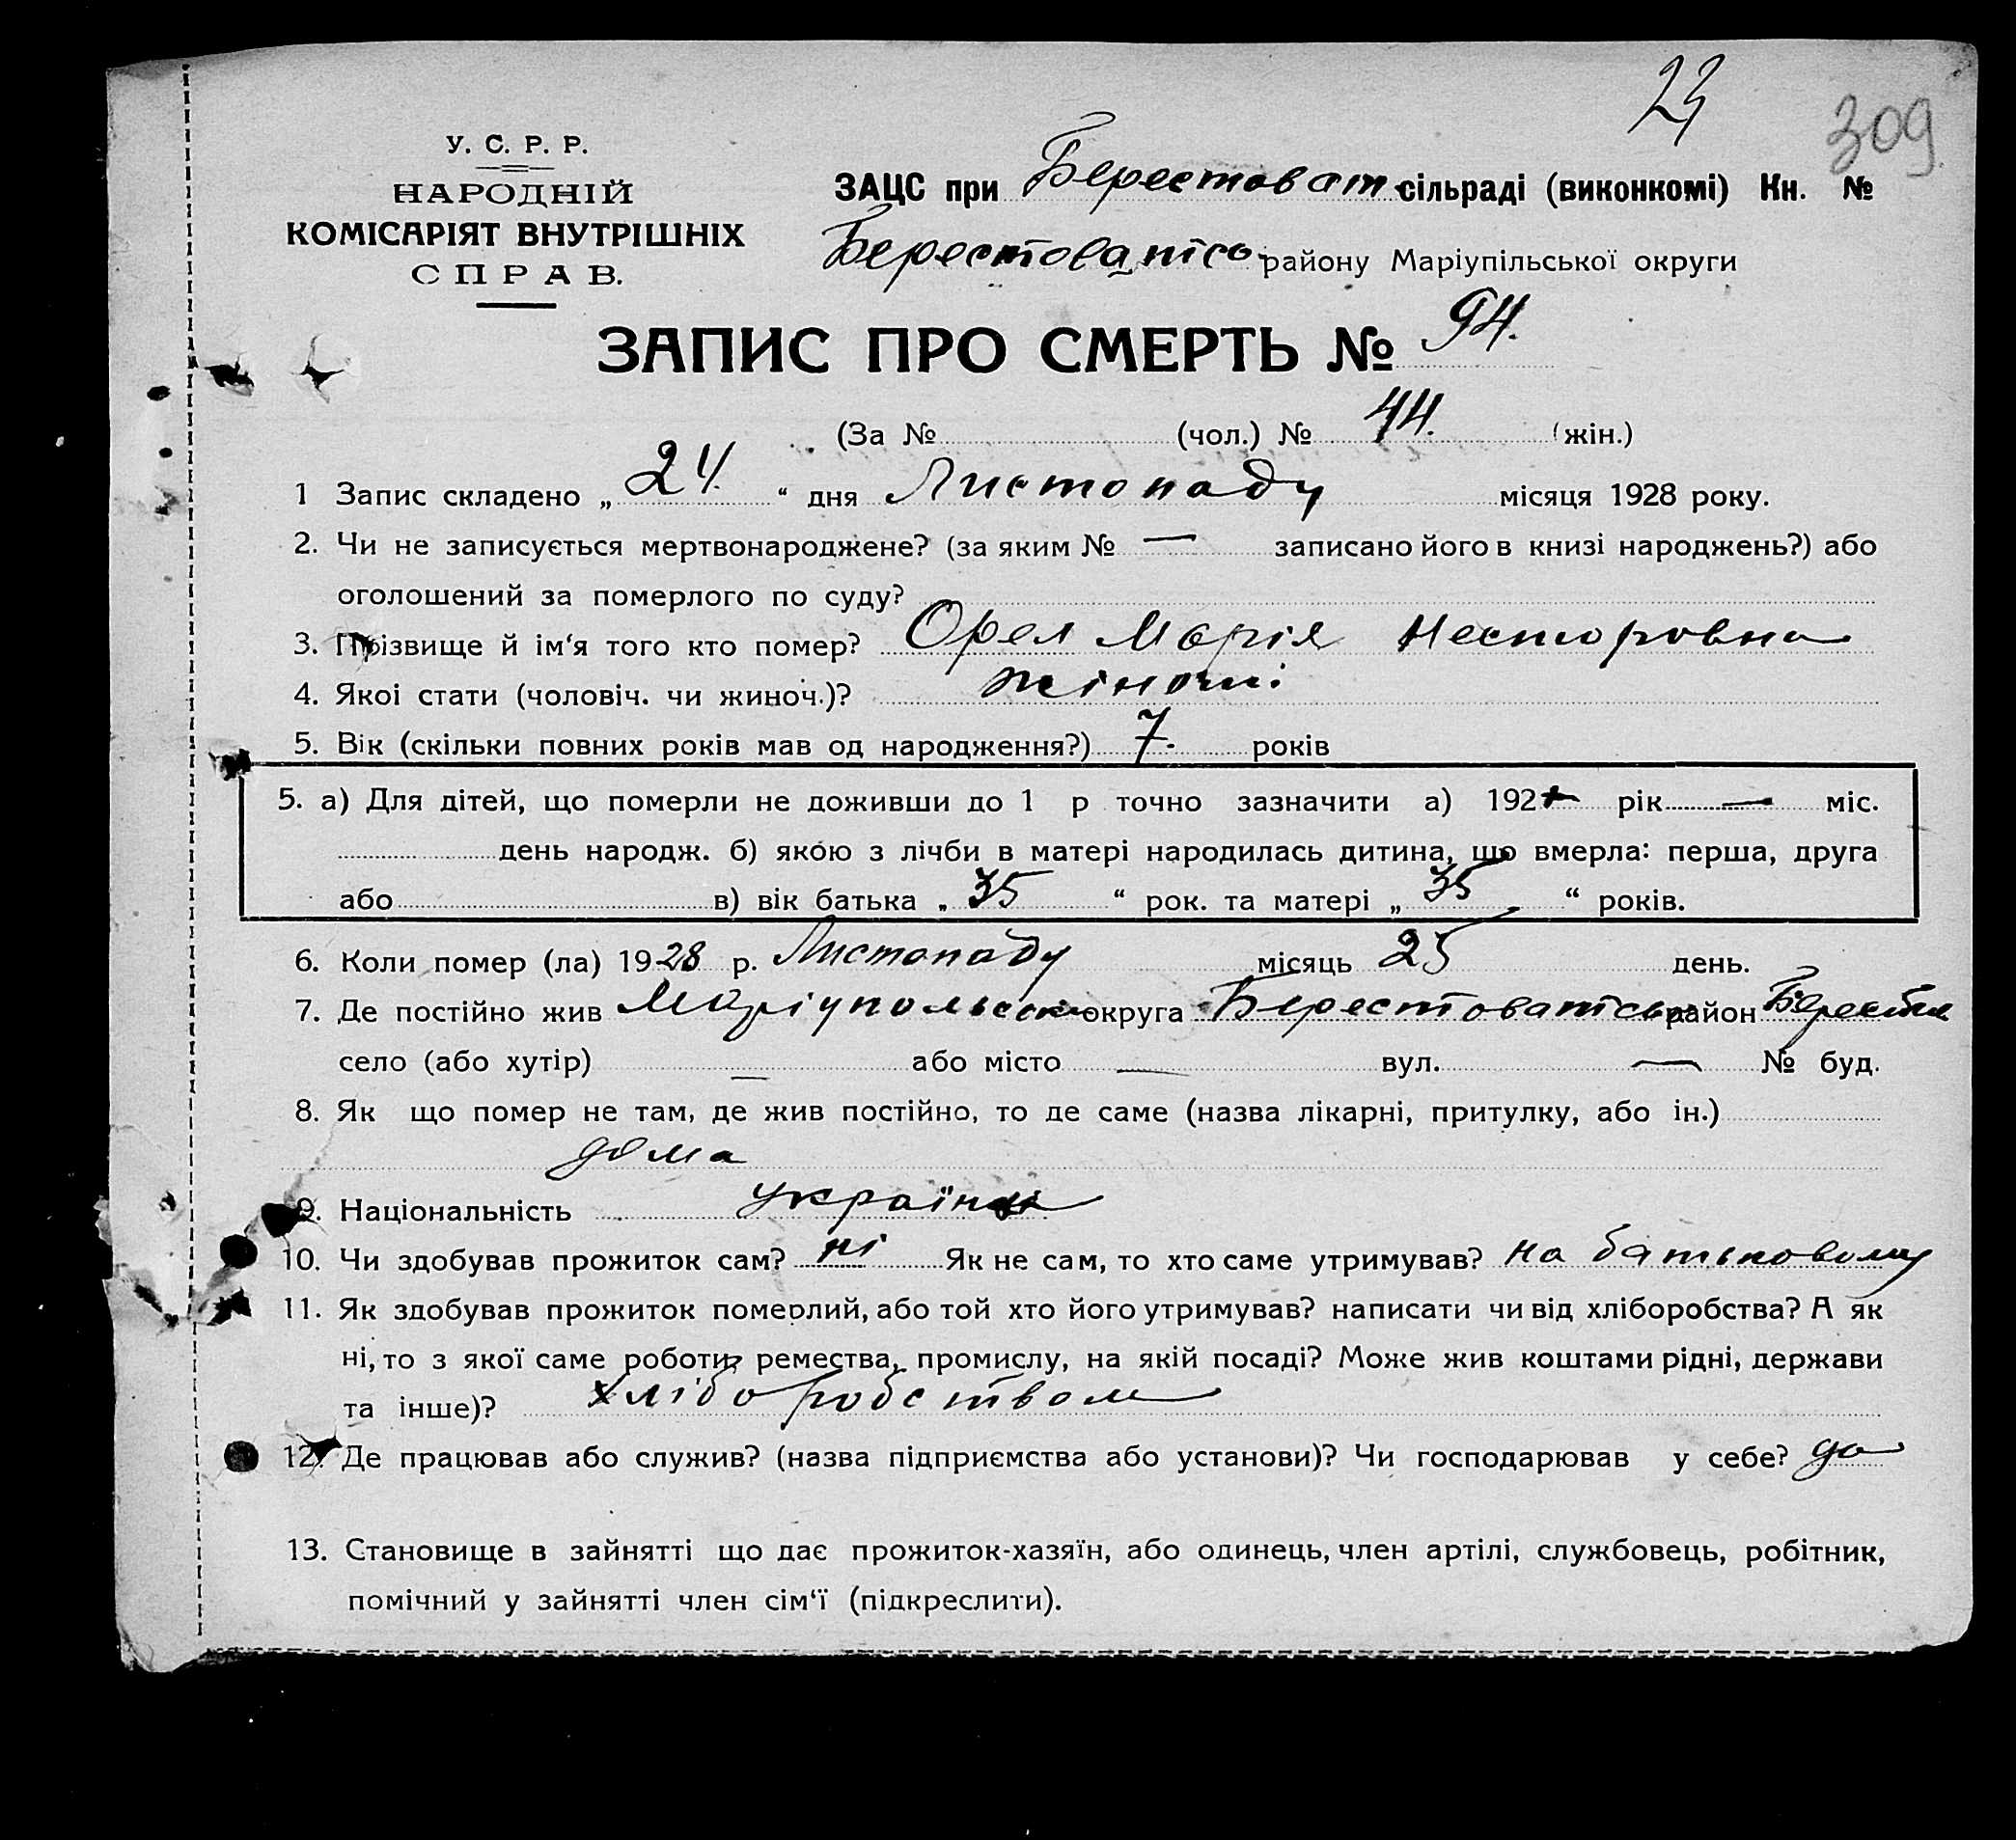 23
309
У. С. Р. Р.
НАРОДНІЙ
КОМІСАРІЯТ ВНУТРІШНІХ
СПРАВ.
ЗАЦС при Берестоват. сільраді (виконкомі) Кн. №
Берестоватсь. району Маріупільської округи
ЗАПИС ПРО СМЕРТЬ № 94.
(За № (чол.) № 44. (жін.)
1 Запис складено „ 24. “ дня Листопаду місяця 1928 року.
2. Чи не записується мертвонароджене? (за яким № — записано його в книзі народжень?) або
оголошений за померлого по суду?
3. Прізвище й ім‘я того кто помер? Орел Марія Несторовна
4. Якоі стати (чоловіч. чи жиноч.)? жіночі
5. Вік (скільки повних років мав од народження?) 7. років
5. а) Для дітей, що померли не доживши до 1 р точно зазначити а) 192 — рік — міс.
день народж. б) якою з лічби в матері народилась дитина, що вмерла: перша, друга
або в) вік батька „ 35 “ рок. та матері „ 35 “ років.
6. Коли помер (ла) 1928 р. Листопаду місяць 25 день.
7. Де постійно жив Маріупольська округа Берестоватська район
село (або хутір) — або місто — вул. — № буд.
8. Як що помер не там, де жив постійно, то де саме (назва лікарні, притулку, або ін.)
дома
9. Національність
10. Чи здобував прожиток сам? ні Як не сам, то хто саме утримував? на батьковому
11. Як здобував прожиток померлий, або той хто його утримував? написати чи від хліборобства? А як
ні, то з якої саме роботи, ремества, промислу, на якій посаді? Може жив коштами рідні, держави
та інше)? хліборобством
12. Де працював або служив? (назва підприємства або установи)? Чи господарював у себе? да
13. Становище в зайнятті що дає прожиток-хазяїн, або одинець, член артілі, службовець, робітник,
помічний у зайнятті член сім‘ї (підкреслити).